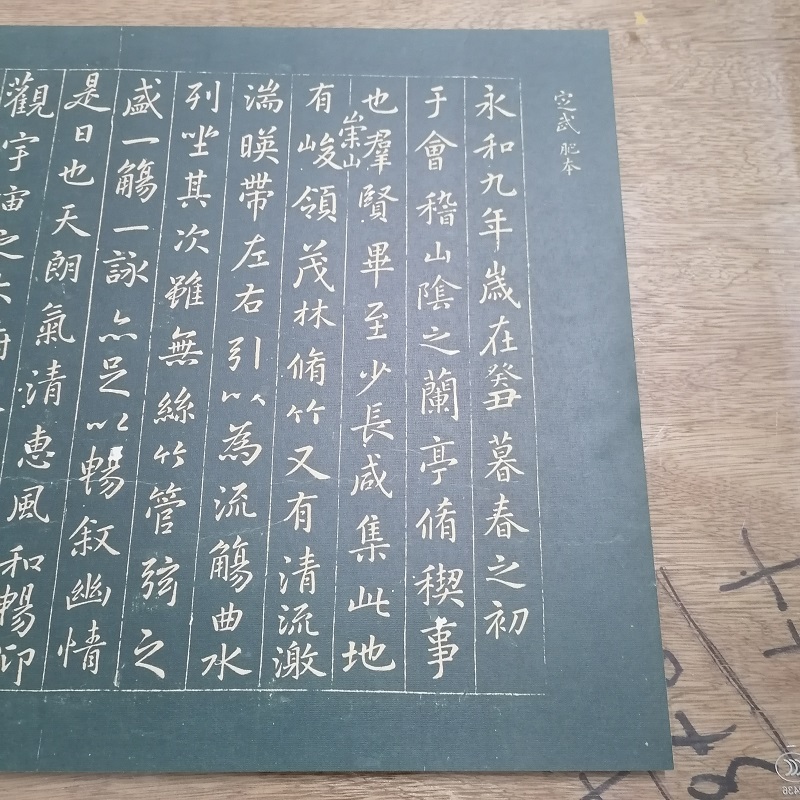 定武 肥本
永和九年歲在癸丑暮春之初
于會稽山陰之蘭亭脩稧事
也羣賢畢至少長咸集此地
有崇山峻領茂林脩竹又有清流激
湍暎帶左右引以為流觴曲水
列坐其次雖無絲竹管弦之
盛一觴一詠亦足以暢叙幽情
是日也天朗氣清惠風和暢仰
觀宇宙之大